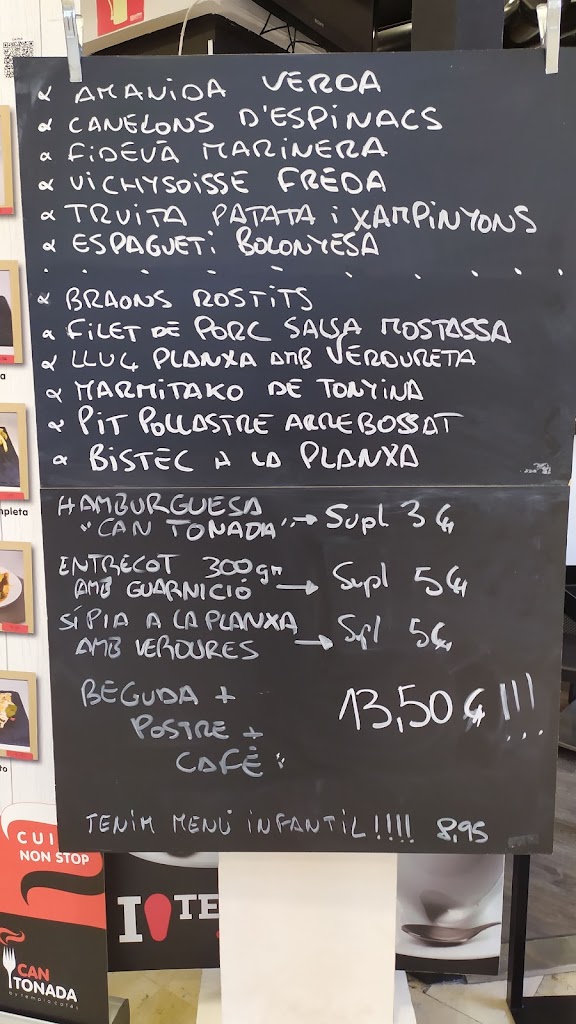 AMANIDA VERDA
CANELONS D'ESPINACS
FIDEVÀ MARINERA
VICHYSOISSE FREDA
TRUITA PATATA i XAMPINYONS
ESPAGUETi BOLONYESA
BRAONS ROSTITS
FILET DE PORC SALSA MOSTASSA
LLUÇ PLANXA AMB VERDURETA
MARMITAKO DE TONYINA
PIT POLLASTRE ARREBOSSAT
BISTEC A LA PLANXA
HAMBURGUESA
"CAN TONADA" → Supl 3€
ENTRECOT 300gr
AMB GUARNICIÓ → Supl 5€
SÍPIA A LA PLANXA
AMB VERDURES → Supl 5€
BEGUDA +
POSTRE + 13,50€!!!
CAFÈ
TENIM MENÚ INFANTIL!!!! 8,95
CUI
NON STOP
CAN
TONADA
I TE
mpleta